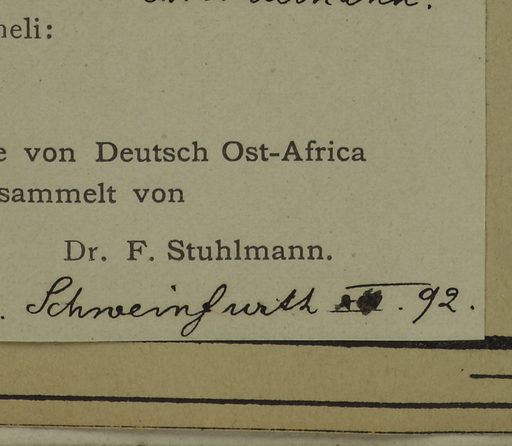 neli:
e von Deutsch Ost-Africa
sammelt von
Dr. F. Stuhlmann.
. Schweinfurth . 92.